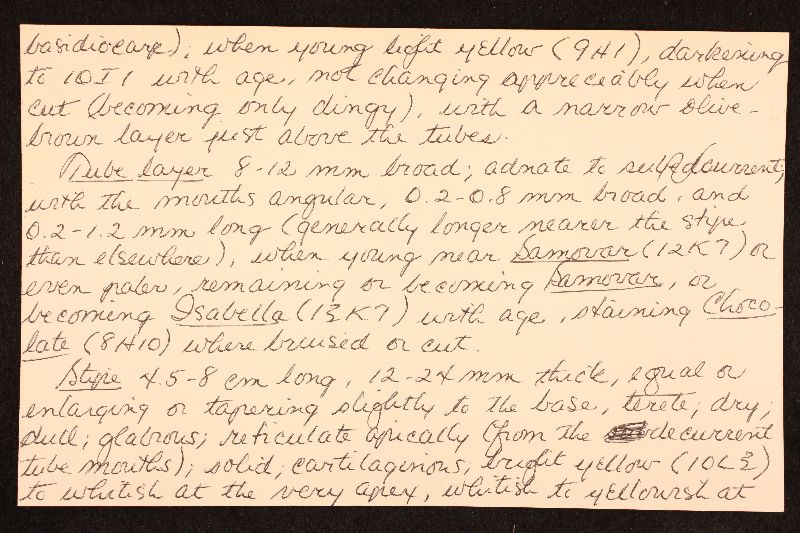 basidiocarp); when young light yellow (9H1), darkening
to 10I1 with age, not changing appreciably when
cut (becoming only dingy), with a narrow olive-
brown layer just above the tubes.
Tube layer 8-12 mm broad; adnate to subdecurrent,
with the mouths angular, 0.2-0.8 mm broad, and
0.2-1.2 mm long (generally longer nearer the stipe
than elsewhere), when young near Samovar (12K7) or
even paler, remaining or becoming Samovar, or
becoming Isabella (13K7) with age, staining Choco-
late (8H10) where bruised or cut.
Stipe 4.5-8 cm long, 12-24 mm thick, equal or
enlarging or tapering slightly to the base, terete; dry;
dull; glabrous; reticulate apically (from the decurrent
tube mouths); solid; cartilaginous, bright yellow (10L3)
to whitish at the very apex, whitish to yellowish at